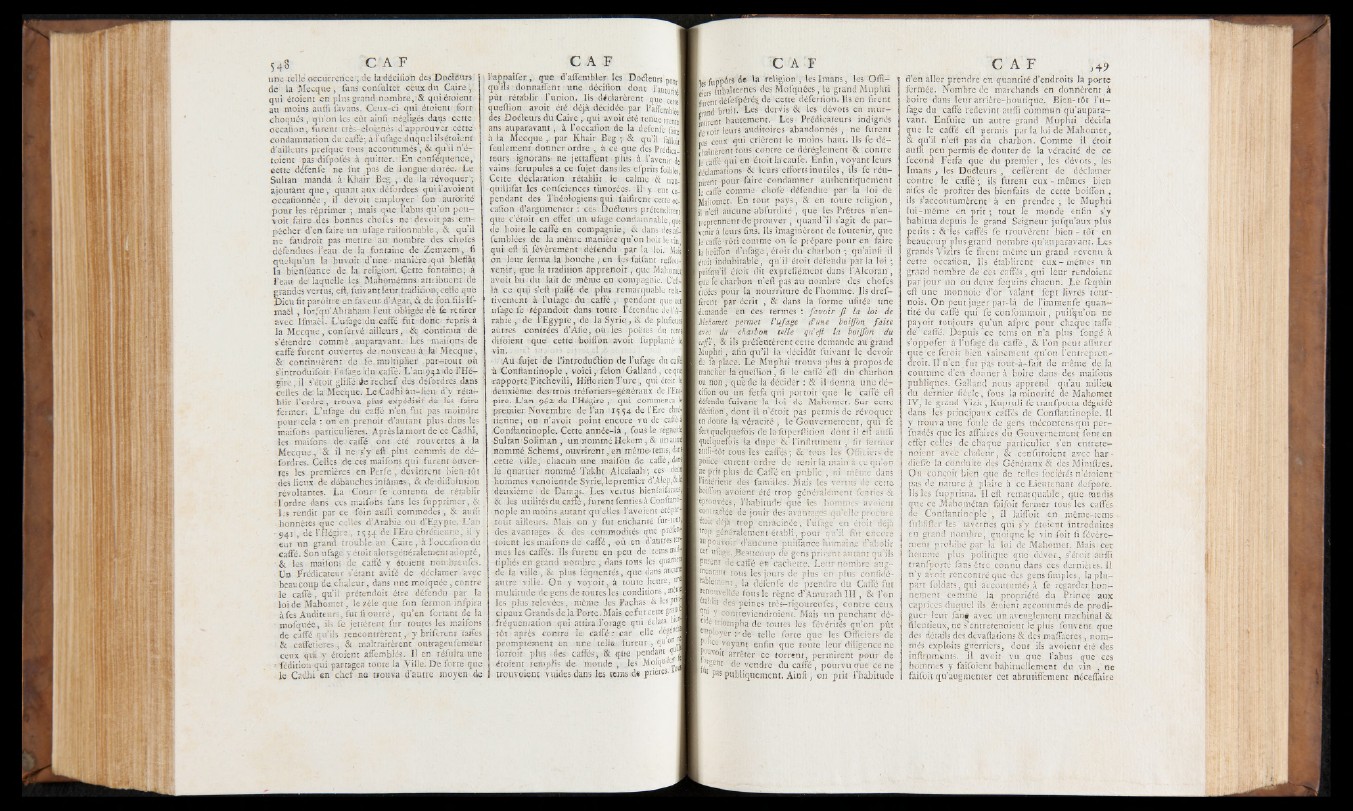 548 CAF CAF
une telle occurrence, de la décision des Docteurs
de la Mecque, sans consulter ceux du Caire,
qui étoient en plus grand nombre, & qui étoient
au moins aussi savans. Ceux-ci qui étoient fort
choqués, qu'on les eût ainsi négligés dans cette
occasion, furent très-éloignés d'approuver cette
condamnation du caffé, à l'usage duquel ils étoient
d'ailleurs presque tous accoutumés, & qu'il n'é-
toient pas disposés à quitter. En conséquence,
cette défense ne fut pas de longue durée. Le
Sultan manda à Khair Beg, de la révoquer;
ajoutant que, quant aux désordres qui l'avoient
occasionnée, il devoit employer son autorité
pour les réprimer; mais que l'abus qu'on pou-
voit faire des bonnes choses ne devoit pas em-
pêcher d'en faire un usage raisonnable, & qu'il
ne faudroit pas mettre au nombre des choses
défendues l'eau de la fontaine de Zemzem, si
quelqu'un la buvoit d'une manière qui blessât
la bienséance de la religion. Cette fontaine, à
l'eau de laquelle les Mahométans attribuent de
grandes vertus, est, suivant leur tradition, celle que
Dieu fit paroître en faveur d'Agar, & de son fils Is-
maël, lorsqu'Abraham l'eut obligée de se retirer
avec Ismaël. L'usage du caffé fut donc repris à
la Mecque, conservé ailleurs, & continua de
s'étendre comme auparavant. Les maisons de
caffé furent ouvertes de nouveau à la Mecque,
& continuèrent de se multiplier par-tout où
s'introduisoit l'usage du caffé. L'an 942 de l'Hé-
gire, il s'étoit glissé de rechef des désordres dans
celles de la Mecque. Le Cadhi au-lieu d'y réta-
blir l'ordre, trouva plus expédient de les faire
fermer. L'usage du caffé n'en fut pas moindre
pour cela: on en prenoit d'autant plus dans les
maisons particulières. Après la mort de ce Cadhi,
les maisons de caffé ont été rouvertes à la
Mecque, & il ne s'y est plus commis de dé-
sordres. Celles de ces maisons qui furent ouver-
tes les premières en Perse, devinrent bien-tôt
des lieux de débauches infâmes, & de dissolution
révoltantes. La Cour se contenta de rétablir
l'ordre dans ces maisons sans les supprimer, &
les rendit par ce soin aussi commodes, & aussi
honnêtes que celles d'Arabie ou d'Egypte. L'an
941, de l'Hégire, 1534 de l'Ere chrétienne, il y
eut un grand trouble au Caire, à l'occasion du
caffé. Son usage y étoit alors généralement adopté,
& les maisons de caffé y étoient nombreuses.
Un Prédicateur s'étant avisé de déclamer avec
beaucoup de chaleur, dans une mosquée, contre
le caffé, qu'il prétendoit être défendu par la
loi de Mahomet, le zèle que son sermon inspira
à ses Auditeurs, fut si outré, qu'en sortant de la
mosquée, ils se jettèrent sur toutes les maisons
de caffé qu'ils rencontrèrent, y brisèrent tasses
& caffetieres, & maltraitèrent outrageusement
ceux qui y étoient assemblés. Il en résulta une
sédition qui partagea toute la Ville. De sorte que
le Cadhi en chef ne trouva d'autre moyen de
l'appaiser, que d'assembler les Docteurs pour
qu'ils donnassent une décision dont l'autorité
pût rétablir l'union. Ils déclarèrent que cette
question avoit été déjà décidée par l'assemblée
des Docteurs du Caire, qui avoit été tenue
ans auparavant, à l'occasion de la défense faite
à la Mecque, par Khair Beg; & qu'il falloit
seulement donner ordre, à ce que des Prédica-
teurs ignorans ne jettassent plus à l'avenir de
vains scrupules à ce sujet dans les esprits foibles.
Cette déclaration rétablit le calme & tran-
quillisât les consciences timorées. Il y eut ce-
pendant des Théologiens qui saisirent cette oc-
casion d'argumenter: ces Docteurs prétendirent
que c'étoit en effet un usage condamnable, que
de boire le caffé en compagnie, & dans des as-
semblées de la même manière qu'on boit le vin,
qui est si sévèrement défendu par la loi. Mais
on leur ferma la bouche, en les faisant ressou-
venir, que la tradition apprenoit, que Mahomet
avoit bu du lait de même en compagnie. C'est
là ce qui s'est passé de plus remarquable rela-
tivement à l'usage du caffé, pendant que cet
usage se répandoit dans toute l'étendue de l'A-
rabie, de l'Egypte, de la Syrie, & de plusieurs
autres contrées d'Asie, où les poëtes du tems
disoient que cette boisson avoit supplanté le
vin.
Au sujet de l'introduction de l'usage du caffé
à Constantinople, voici, selon Galland, ce que
rapporte Pitchevili, Historien Turc, qui étoit le
deuxième des trois trésoriers-généraux de l'Em-
pire. L'an 962 de l'Hégire, qui commença le
premier Novembre de l'an 1554 de l'Ere chré-
tienne, on n'avoit point encore vu de caffé à
Constantinople. Cette année-là, sous le règne de
Sultan Soliman, un nommé Hekem, & un autre
nommé Schems, ouvrirent, en même-tems, dans
cette ville, chacun une maison de caffé, dans
le quartier nommé Takht Alcalaah; ces deux
hommes venoient de Syrie, le premier d'Alep, & le
deuxième de Damas. Les vertus bienfaisantes,
& les utilités du caffé, furent senties à Constanti-
nople au moins autant qu'elles l'avoient été par-
tout ailleurs. Mais on y fut enchanté sur-tout
des avantages & des commodités que présen-
toient les maisons de caffé, ou en d'autres ter-
mes les caffés. Ils furent en peu de tems mul-
tipliés en grand nombre, dans tous les quartiers
de la ville, & plus fréquentés, que dans aucune
autre ville. On y voyoit, à toute heure, une
multitude de gens de toutes les conditions, même
les plus relevées, même les Pachas & les prin-
cipaux Grands de la Porte. Mais ce fut cette grande
fréquentation qui attira l'orage qui éclata bien-
tôt après contre le caffé: car elle dégénéra
promptement en une telle fureur, qu'on ne
sortoit plus des caffés, & que pendant qu'ils
étoient remplis de monde, les Mosquées se
trouvoient vuides dans les tems de prières. Tous
CAF CAF 549
les suppôts de la religion, les Imans, les Offi-
ciers subalternes des Mosquées, le grand Muphti
furent désespérés de cette désertion. Ils en firent
grand bruit. Les dervis & les dévots en mur-
murèrent hautement. Les Prédicateurs indignés
de voir leurs auditoires abandonnés, ne furent
pas ceux qui crièrent le moins haut. Ils se dé-
chaînèrent tous contre ce dérèglement & contre
le caffé qui en étoit la cause. Enfin, voyant leurs
déclamations & leurs efforts inutiles, ils se réu-
nirent pour faire condamner authentiquement
le caffé comme chose défendue par la loi de
Mahomet. En tout pays, & en toute religion,
il n'est aucune absurdité, que les Prêtres n'en-
treprennent de prouver, quand il s'agit de par-
venir à leurs fins. Ils imaginèrent de soutenir, que
le caffé rôti comme on le prépare pour en faire
la boisson d'usage, étoit du charbon; qu'ainsi il
étoit indubitable, qu'il étoit défendu par la loi;
puisqu'il étoit dit expressément dans l'Alcoran,
que le charbon n'est pas au nombre des choses
créées pour la nourriture de l'homme. Ils dres-
sèrent par écrit, & dans la forme usitée une
demande en ces termes: savoir si la loi de
Mahomet permet l'usage d'une boisson faite
avec du charbon telle qu'est la boisson du
caffé, & ils présentèrent cette demande au grand
Muphti, afin qu'il la décidât suivant le devoir
de sa place. Le Muphti trouva plus à propos de
trancher la question, si le caffé est du charbon
ou non, que de la décider: & il donna une dé-
cision ou un fetfa qui portoit que le caffé est
défendu suivant la loi de Mahomet. Sur cette
décision, dont il n'étoit pas permis de révoquer
en doute la véracité, le Gouvernement, qui se
sert quelquefois de la superstition dont il est aussi
quelquefois la dupe & l'instrument, fit fermer
aussi-tôt tous les caffés; & tous les Officiers de
police eurent ordre de tenir la main à ce qu'on
ne prît plus de Caffé en public, ni même dans
l'intérieur des familles. Mais les vertus de cette
boisson avoient été trop généralement senties &
éprouvées, l'habitude que les hommes avoient
contractée de jouir des avantages qu'elle procure
étoit déjà trop enracinée, l'usage en étoit déjà
trop généralement établi, pour qu'il fût encore
au pouvoir d'aucune puissance humaine d'abolir
cet usage. Beaucoup de gens prirent autant qu'ils
purent de caffé en cachette. Leur nombre aug-
mentoit tous les jours de plus en plus considé-
rablement, la défense de prendre du Caffé fut
renouvellée sous le règne d'Amurath III, & l'on
établit des peines très-rigoureuses, contre ceux
qui y contreviendroient. Mais un penchant dé-
cidé triompha de toutes les sévérités qu'on pût
employer: de telle sorte que les Officiers de
police voyant enfin que toute leur diligence ne
pouvoit arrêter ce torrent, permirent pour de
l'argent de vendre du caffé, pourvu que ce ne
fût pas publiquement. Ainsi, on prit l'habitude
d'en aller prendre en quantité d'endroits la porte
fermée. Nombre de marchands en donnèrent à
boire dans leur arrière-boutique. Bien-tôt l'u-
sage du caffé redevint aussi commun qu'aupara-
vant. Ensuite un autre grand Muphti décida
que le caffé est permis par la loi de Mahomet,
& qu'il n'est pas du charbon. Comme il étoit
aussi peu permis de douter de la véracité de ce
second Fetfa que du premier, les dévots, les
Imans, les Docteurs, cessèrent de déclamer
contre le caffé; ils furent eux-mêmes bien
aises de profiter des bienfaits de cette boisson,
ils s'accoutumèrent à en prendre; le Muphti
lui-même en prit; tout le monde enfin s'y
habitua depuis le grand Seigneur jusqu'aux plus
petits: & les caffés se trouvèrent bien-tôt en
beaucoup plus grand nombre qu'auparavant. Les
grands Visirs se firent même un grand revenu à
cette occasion. Ils établirent eux-mêmes un
grand nombre de ces caffés, qui leur rendoient
par jour un ou deux sequins chacun. Le sequin
est une monnoie d'or valant sept livres tour-
nois. On peut juger par-là de l'immense quan-
tité du caffé qui se consommoit, puisqu'on ne
payoit toujours qu'un aspre pour chaque tasse
de caffé. Depuis ce tems on n'a plus songé à
s'opposer à l'usage du caffé, & l'on peut assurer
que ce seroit bien vainement qu'on l'entrepren-
droit. Il n'en fut pas tout-à-fait de même de la
coutume d'en donner à boire dans des maisons
publiques. Galland nous apprend qu'au milieu
du dernier siècle, sous la minorité de Mahomet
IV, le grand Visir, Kupruli se transporta déguisé
dans les principaux caffés de Constantinople. Il
y trouva une foule de gens mécontens qui per-
suadés que les affaires du Gouvernement sont en
effet celles de chaque particulier s'en entrete-
noient avec chaleur, & censuroient avec har-
diesse la conduite des Généraux & des Ministres.
On conçoit bien que de telles sociétés n'étoient
pas de nature à plaire à ce Lieutenant despote.
Ils les supprima. Il est remarquable, que tandis
que ce Mahométan faisoit fermer tous les caffés
de Constantinople, il laissoit en même-tems
subsister les tavernes qui s'y étoient introduites
en grand nombre, quoique le vin soit si sévère-
ment prohibé par la loi de Mahomet. Mais cet
homme plus politique que dévot, s'étoit aussi
transporté sans être connu dans ces dernières. Il
n'y avoit rencontré que des gens simples, la plu-
part soldats, qui accoutumés à se regarder bon-
nement comme la propriété du Prince aux
caprices duquel ils étoient accoutumés de prodi-
guer leur sang avec un aveuglement machinal &
silencieux, ne s'entretenoient le plus souvent que
des détails des dévastations & des massacres, nom-
més exploits guerriers, dont ils avoient été des
instrumens. Il avoit vu que l'abus que ces
hommes y faisoient habituellement du vin, ne
faisoit qu'augmenter cet abrutissement nécessaire